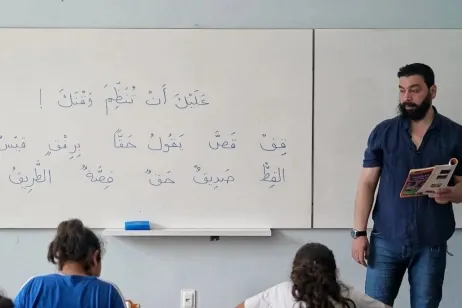 عَلَيْكَ أَنْ تُنَظِّمَ وَقْتَكَ !
قِفْ قَصَّ يَقُولُ حَقًّا بِرِفْقٍ
القِطُّ صَدِيقٌ حَقٌّ قِصَّةٌ الطَّرِيقُ